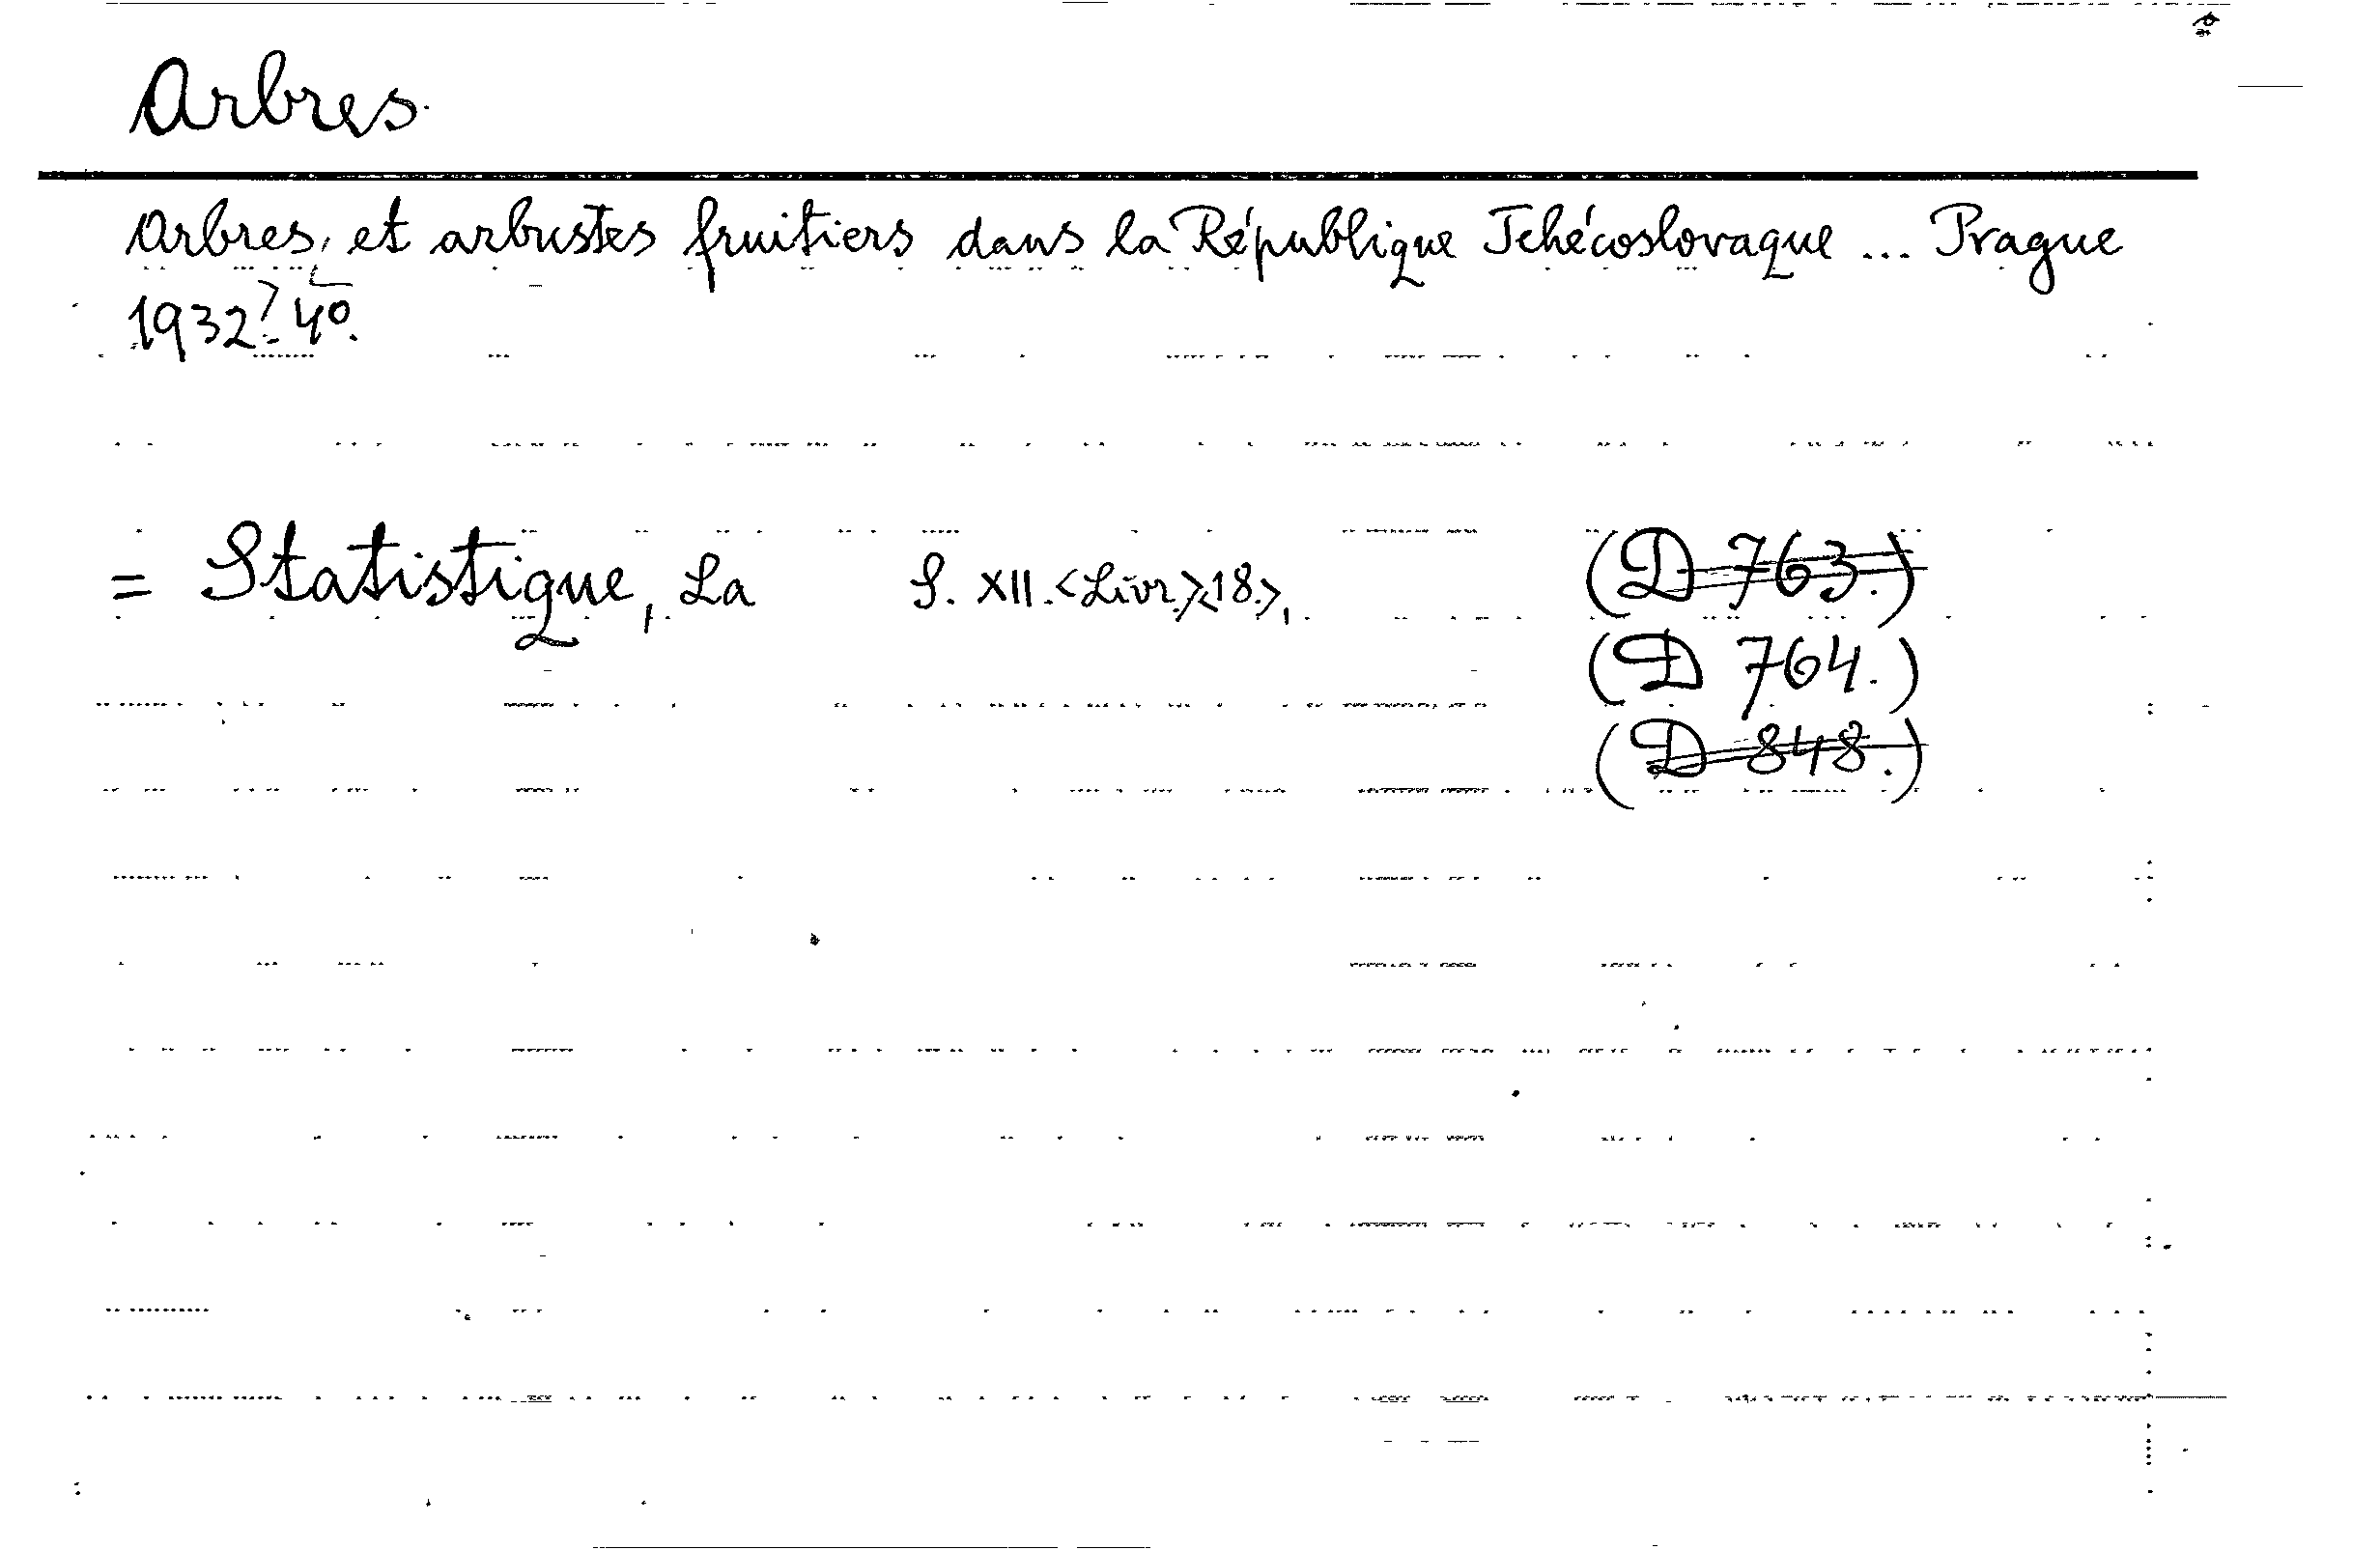 Arbres.
Arbres, et arbustes fruitiers dans la République Tchécoslovaque ... Prague
1932? 4º.
= Statistique, La S. XII. <Livr.> <18.>,
(D 763.)
(D 764.)
(D 848.)